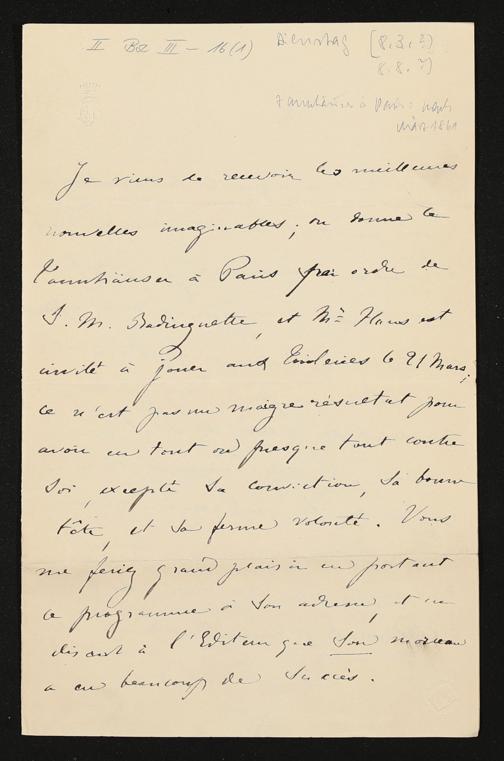 II Bd III - 16(1)
Dienstag [8.3.?)
8.8.?)
Tannhäuser à Paris: nach
März 1861
Je viens de recevoir les meilleures
nouvelles imaginables; on donne le
Tannhäuser à Paris par ordre de
S. M. Badinguette, et Mr Hans est
invité à jouer aux Tuileries le 21 Mars;
ce n'est pas un maigre résultat pour
avoir eu tout ou presque tout contre
soi, excepté sa conviction, sa bonne
tête, et sa ferme volonté. Vous
me feriez grand plaisir en portant
ce programme à son adresse, et en
disant à l'Editeur que son morceau
a eu beaucoup de succès.